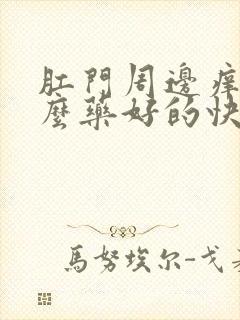 肛門周邊痒
麼藥好的快
馬努埃尔-戈